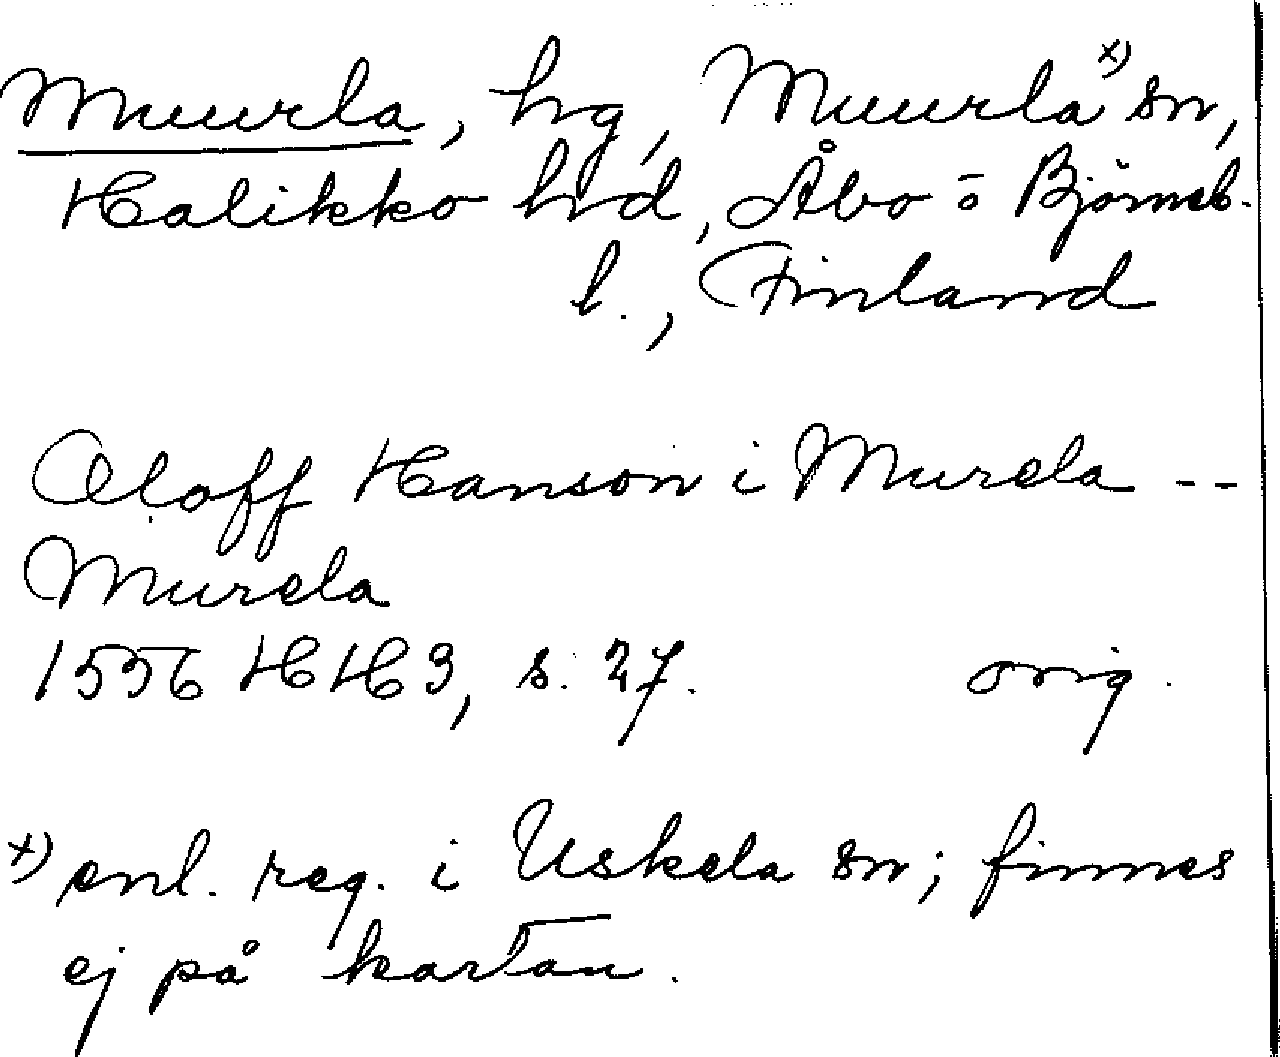 Muurla, hg, Muurla x) sn,
Halikko hd, Åbo o Björneb.
l., Finland
Oloff Hanson i Murela --
Murela
1556 HH 3, s. 27. orig.
x) enl. reg. i Uskela sn; finnes
ej på kartan.